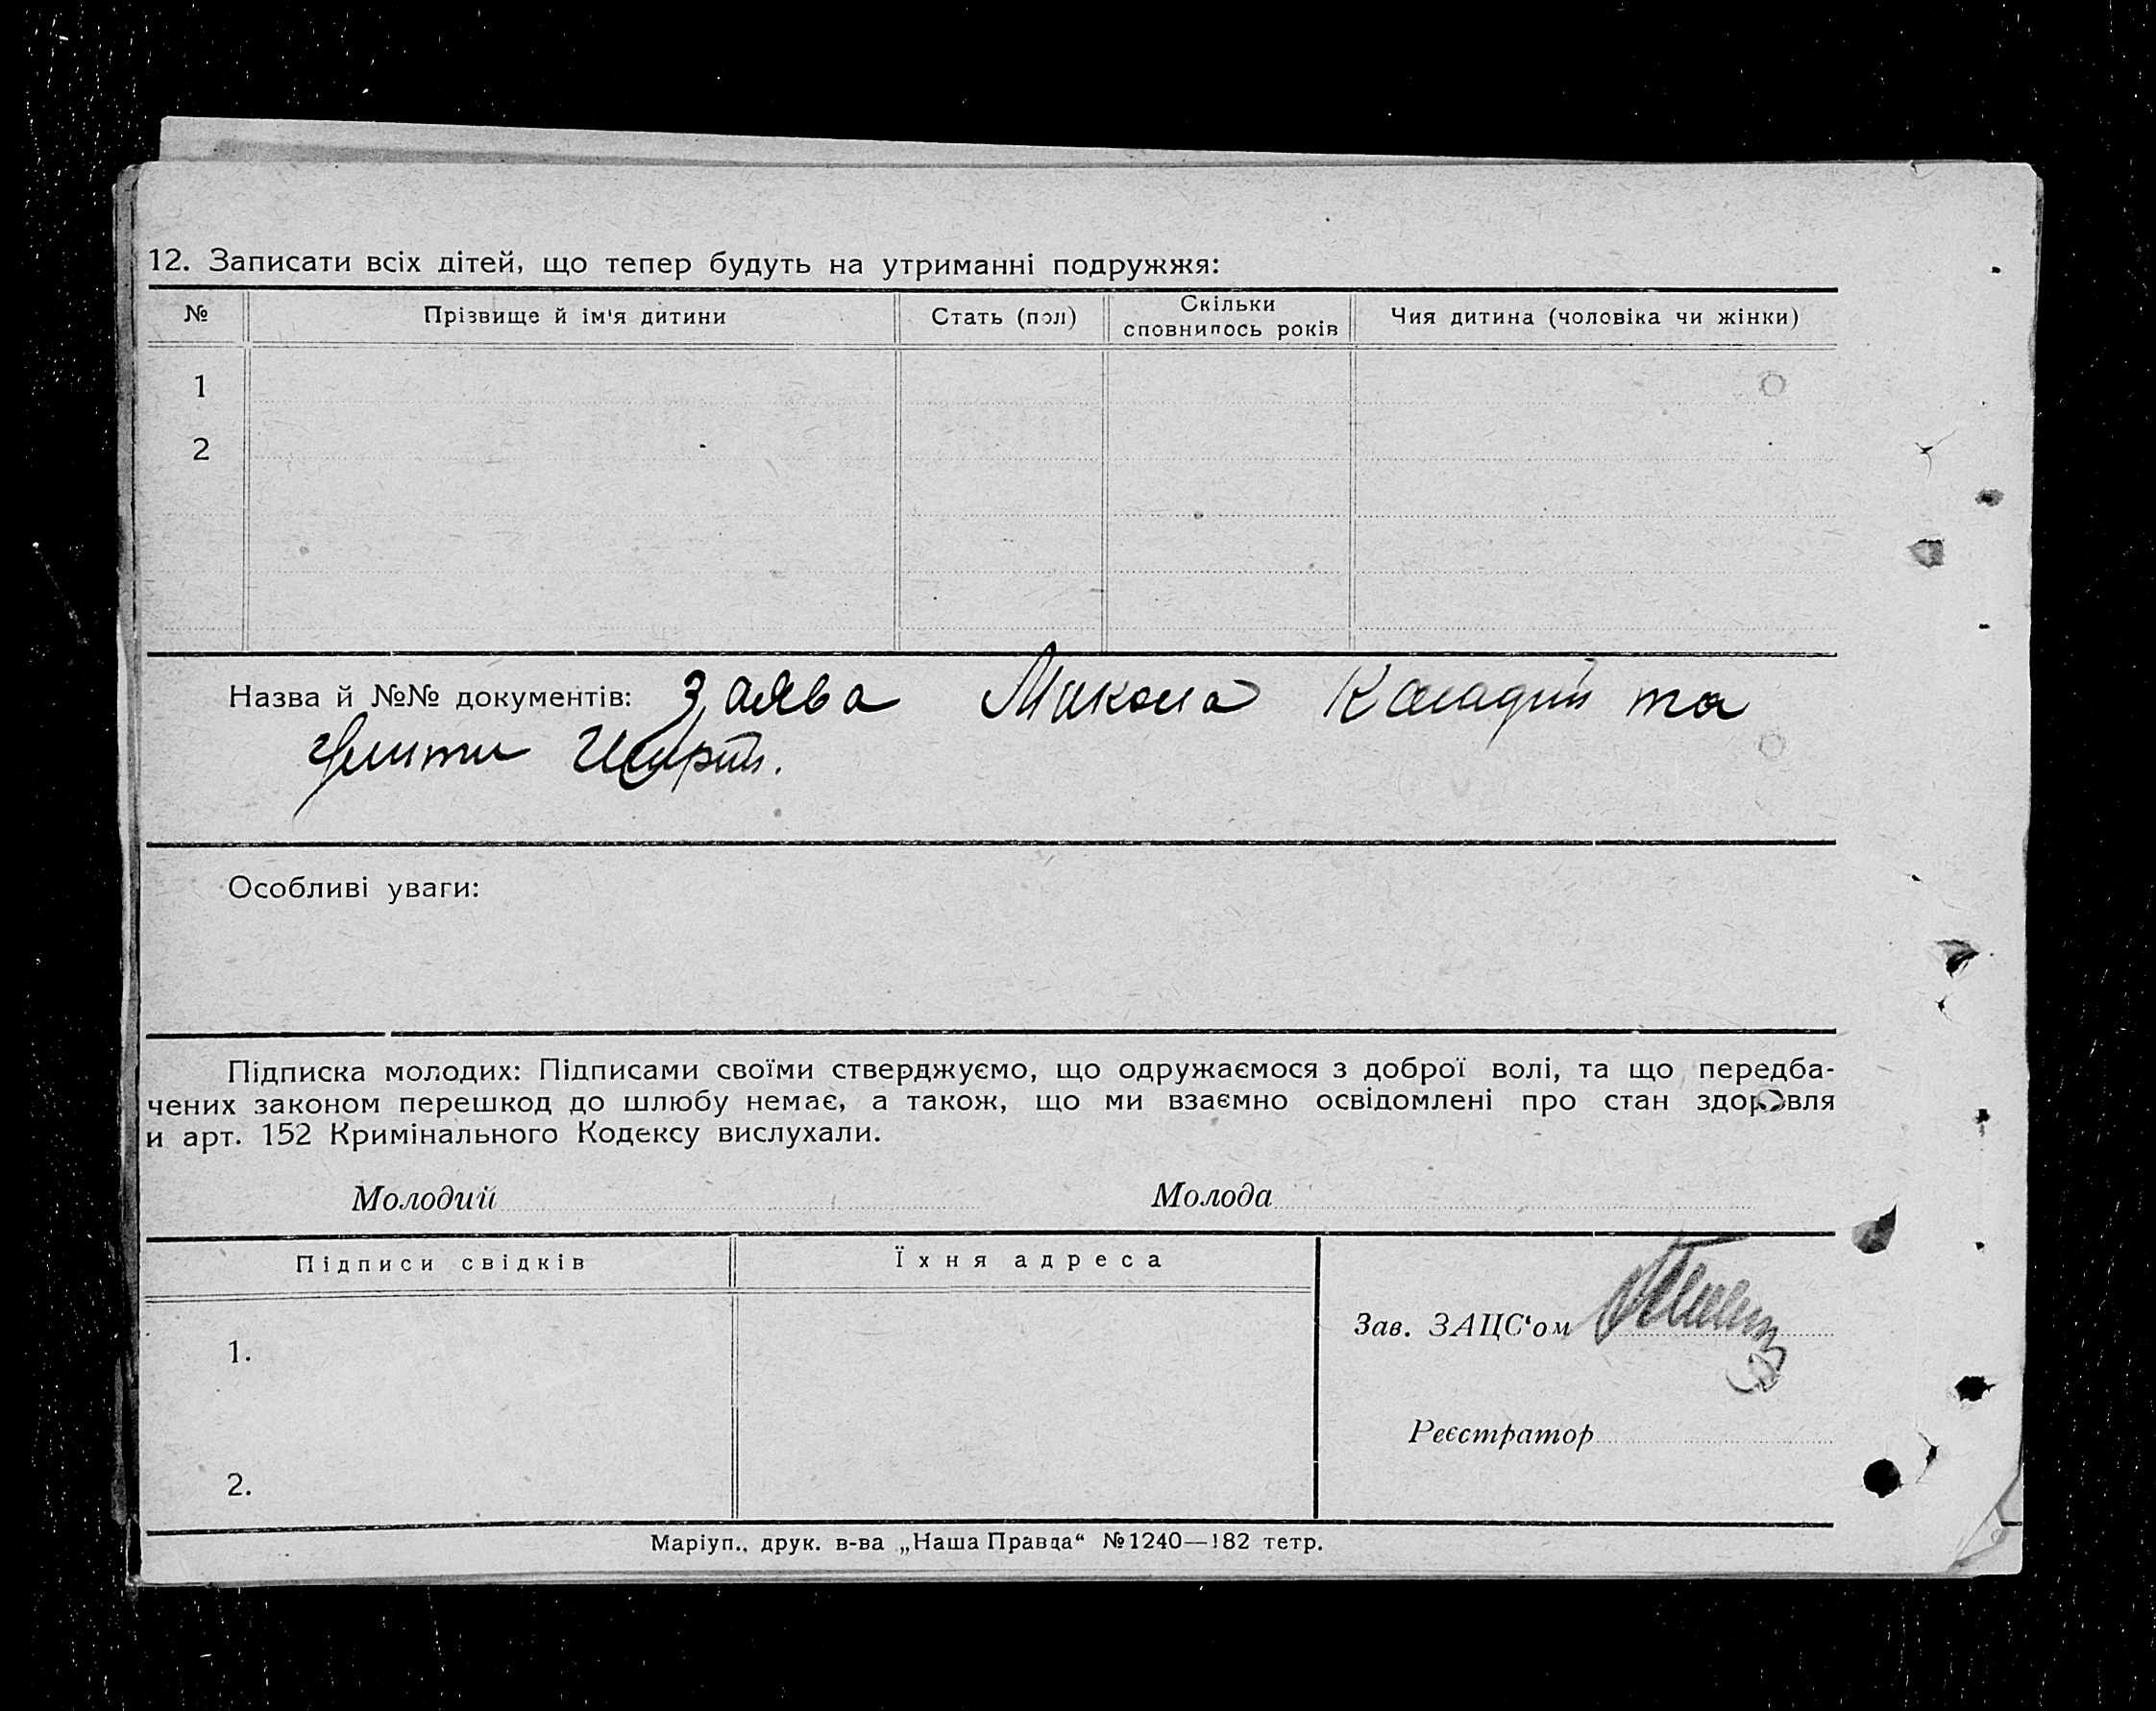 12. Записати всіх дітей, що тепер будуть на утриманні подружжя:
№ Прізвище й ім'я дитини Стать (пол) Скільки сповнилось років Чия дитина (чоловіка чи жінки)
1
2
Назва й №№ документів: Заява Микола та
Особливі уваги:
Підписка молодих: Підписами своїми стверджуємо, що одружаємося з доброї волі, та що передба-
чених законом перешкод до шлюбу немає, а також, що ми взаємно освідомлені про стан здоровля
и арт. 152 Кримінального Кодексу вислухали.
Молодий Молода
Підписи свідків Їхня адреса
Зав. ЗАЦС'ом
1.
Реєстратор
2.
Маріуп., друк. в-ва „Наша Правда“ №1240—182 тетр.